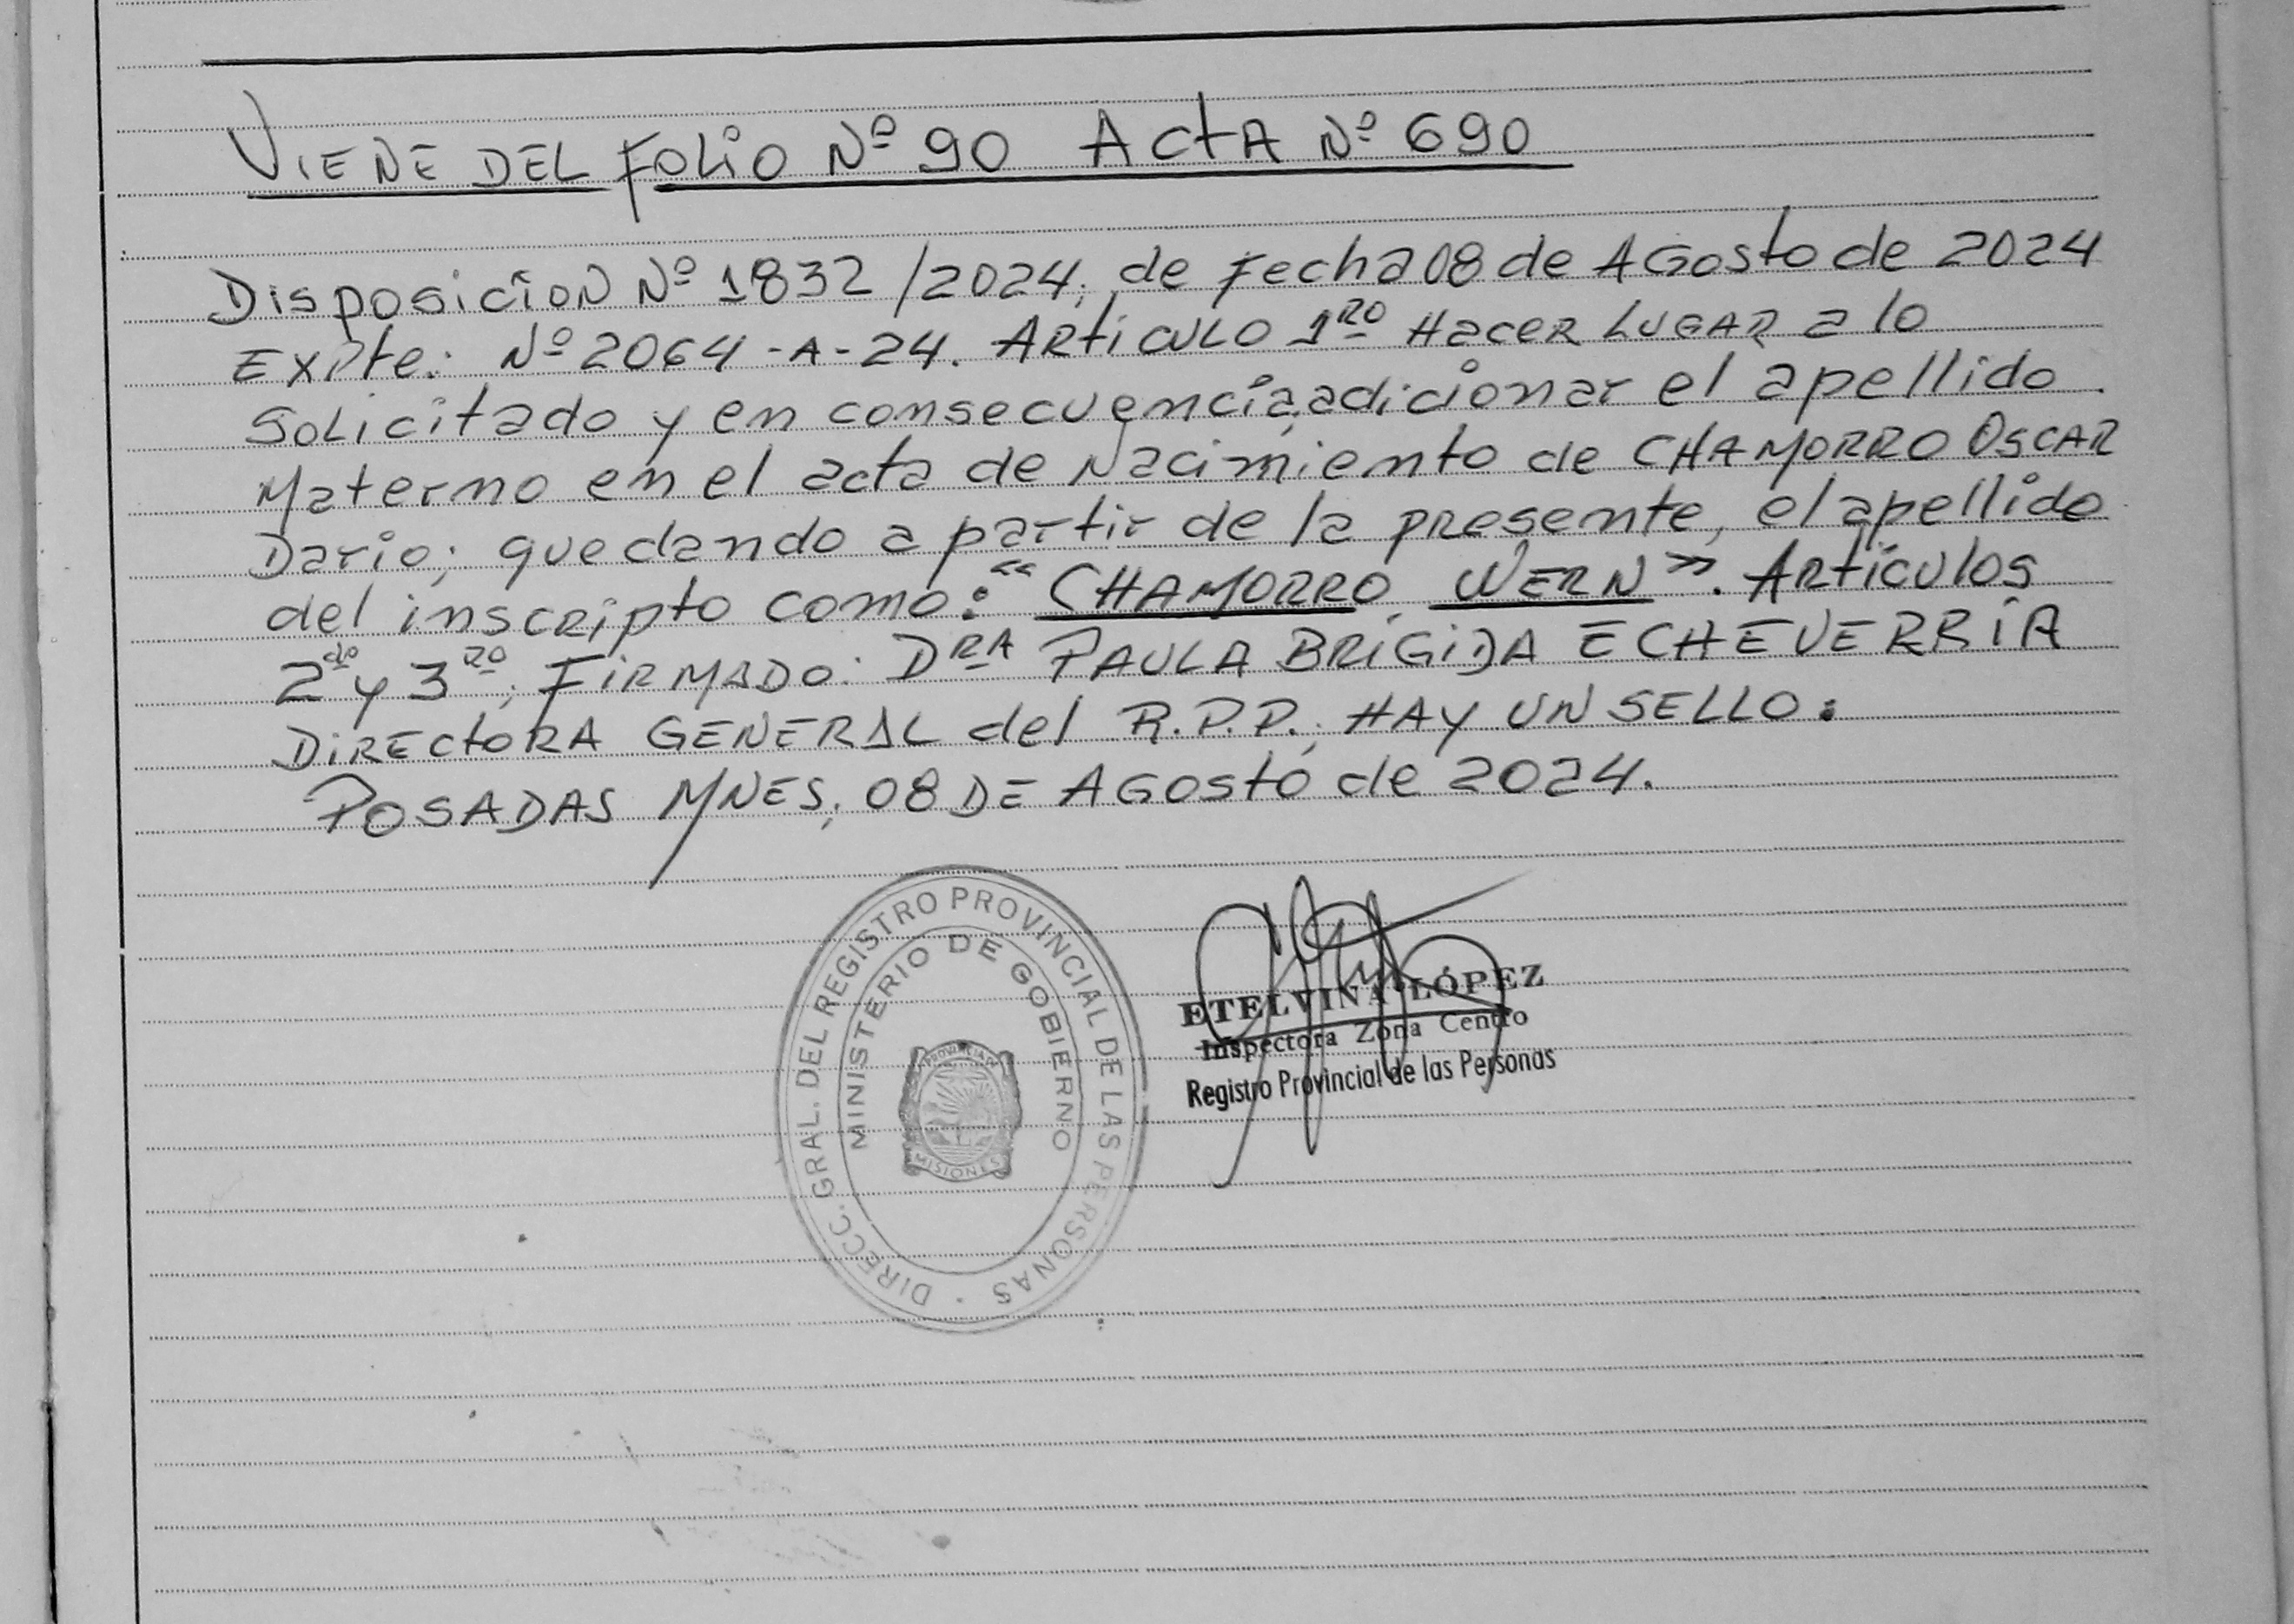 VIENE DEL FOLIO Nº 90 ACTA Nº 690
Disposición Nº 1832/2024, de Fecha 08 de AGosto de 2024
EXPte: Nº 2064-A-24. ARtiCULO 1RO HACER LUGAR a lo
SoLicitado y en consecuencia, adicionar el apellido
Materno en el acta de Nacimiento de CHAMORRO OSCAR
Dario; quedando a partir de la presente, el apellido
del inscripto como: "CHAMORRO WERN". ARtículos
2do y 3RO, FiRMADO: DRA PAULA BRIGIDA ECHEVERRIA
DIRECtoRA GENERAL del R.P.P., HAY UN SELLO.
POSADAS MNES, 08 DE AGosto de 2024.
DIRECC. GRAL. DEL REGISTRO PROVINCIAL DE LAS PERSONAS
MINISTERIO DE GOBIERNO
PROVINCIA DE
MISIONES
ETELVINA LÓPEZ
Inspectora Zona Centro
Registro Provincial de las Personas